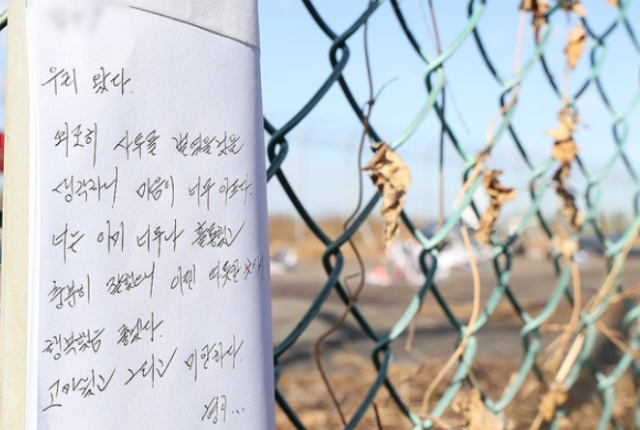 우리 왔다.
외로히 사투를 벌였을 것을
생각하니 마음이 너무 아프다.
너는 이미 너무나 훌륭했고
충분히 잘했으니 이젠 따뜻한
행복했음 좋겠다.
고마웠고 그리고 미안하다.
형이...